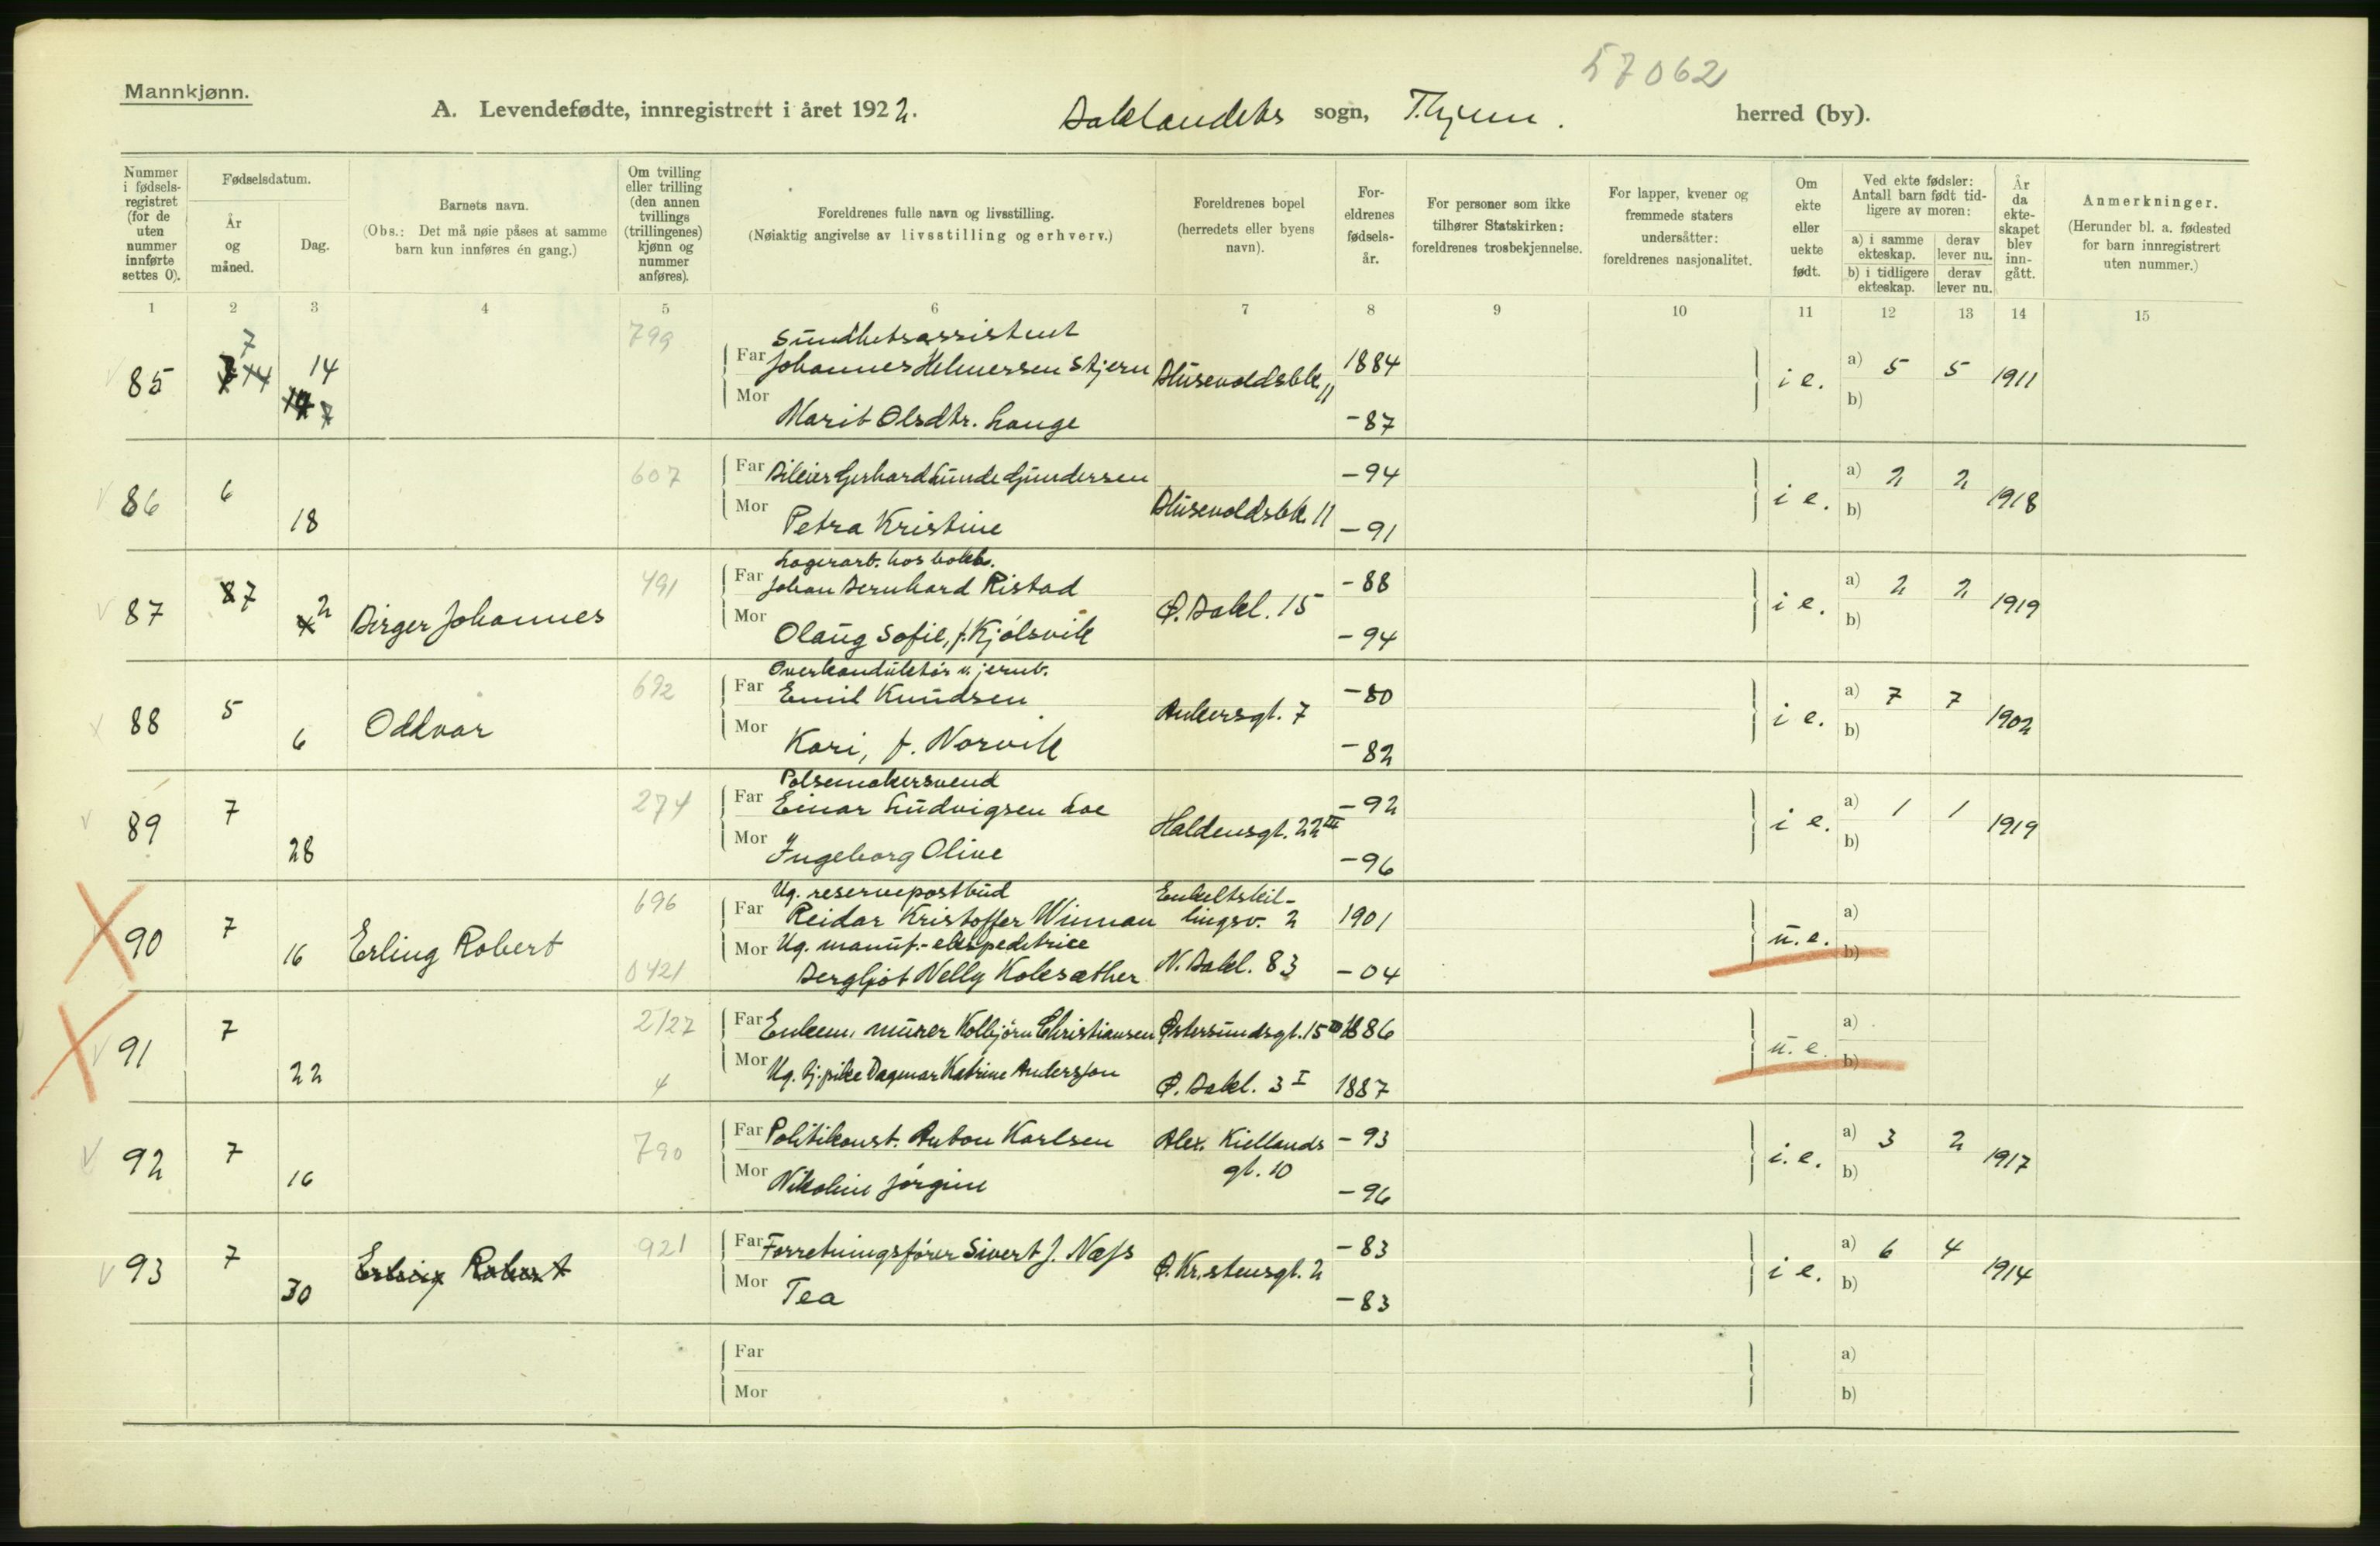 57062
Mannkjønn.
A. Levendefødte, innregistrert i året 1922. Baklandets sogn, T.hjem. herred (by).
Nummer i fødsels-registret (for de uten nummer innførte settes 0).
Fødselsdatum.
År og måned.
Dag.
Barnets navn.
(Obs.: Det må nøie påses at samme barn kun innføres én gang.)
Om tvilling eller trilling (den annen tvillings (trillingenes) kjønn og nummer anføres).
Foreldrenes fulle navn og livsstilling.
(Nøiaktig angivelse av livsstilling og erhverv.)
Foreldrenes bopel (herredets eller byens navn).
For-eldrenes fødsels-år.
For personer som ikke tilhører Statskirken: foreldrenes trosbekjennelse.
For lapper, kvener og fremmede staters undersåtter: foreldrenes nasjonalitet.
Om ekte eller uekte født.
Ved ekte fødsler: Antall barn født tid-ligere av moren:
a) i samme ekteskap. derav lever nu.
b) i tidligere ekteskap. derav lever nu.
År da ekte-skapet blev inn-gått.
Anmerkninger.
(Herunder bl. a. fødested for barn innregistrert uten nummer.)
1 2 3 4 5 6 7 8 9 10 11 12 13 14 15
85 7 14 799 Sundhetsassistent
Far Johannes Helmersen Stjern Dusevoldsbk. 11 1884 i e. a) 5 5 1911
Mor Marit Olsdtr. Lauge -87 b)
86 6 18 607 Far Birger Gerhard Lunde Gundersen Dusevoldsbk. 11 -94 i e. a) 2 2 1918
Mor Petra Kristine -91 b)
87 87 2 Birger Johannes 491 Lagerarb. hos bokb.
Far Johan Bernhard Ristad Ø. Bakl. 15 -88 i e. a) 2 2 1919
Mor Olaug Sofie, f. Kjølsvik -94 b)
88 5 6 Oddvar 692 Overkonduktør v. jernb.
Far Emil Knudsen Ankersgt. 7 -80 i e. a) 7 7 1902
Mor Kari, f. Norvik -82 b)
89 7 28 274 Pølsemakersvend
Far Einar Ludvigsen Loe Haldensgt. 22 III -92 i e. a) 1 1 1919
Mor Ingeborg Olive -96 b)
90 7 16 Erling Robert 696 Ug. reservepostbud Enkeltskil-
Far Reidar Kristoffer Winnan lingsv. 2 1901 u. e. a)
0421 Mor Ug. manuf.-ekspeditrice
Bergljot Nelly Kolsæther N. Bakl. 83 -04 b)
91 7 22 2127 Far Enkem. murer Kolbjørn Christiansen Østersundsgt. 15 III 1886 u. e. a)
4 Mor Ug. hj. pike Dagmar Katrine Andersson Ø. Bakl. 3 I 1887 b)
92 7 16 790 Far Politikonst. Anton Karlsen Alex. Kiellands -93 i. e. a) 3 2 1917
Mor Nikoline Jørgine gt. 10 -96 b)
93 7 30 Erling Robert 921 Far Forretningsfører Sivert J. Næss Ø. Kristensgt. 2 -83 i e. a) 6 4 1914
Mor Tea -83 b)
Far a)
Mor b)